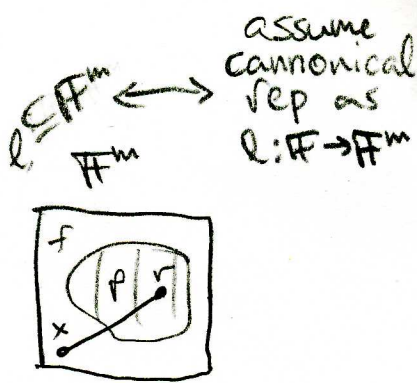 assume
cannonical
rep as
l ⊆ 𝔽^m ⟷ l: 𝔽 → 𝔽^m
𝔽^m
f
p
r
x